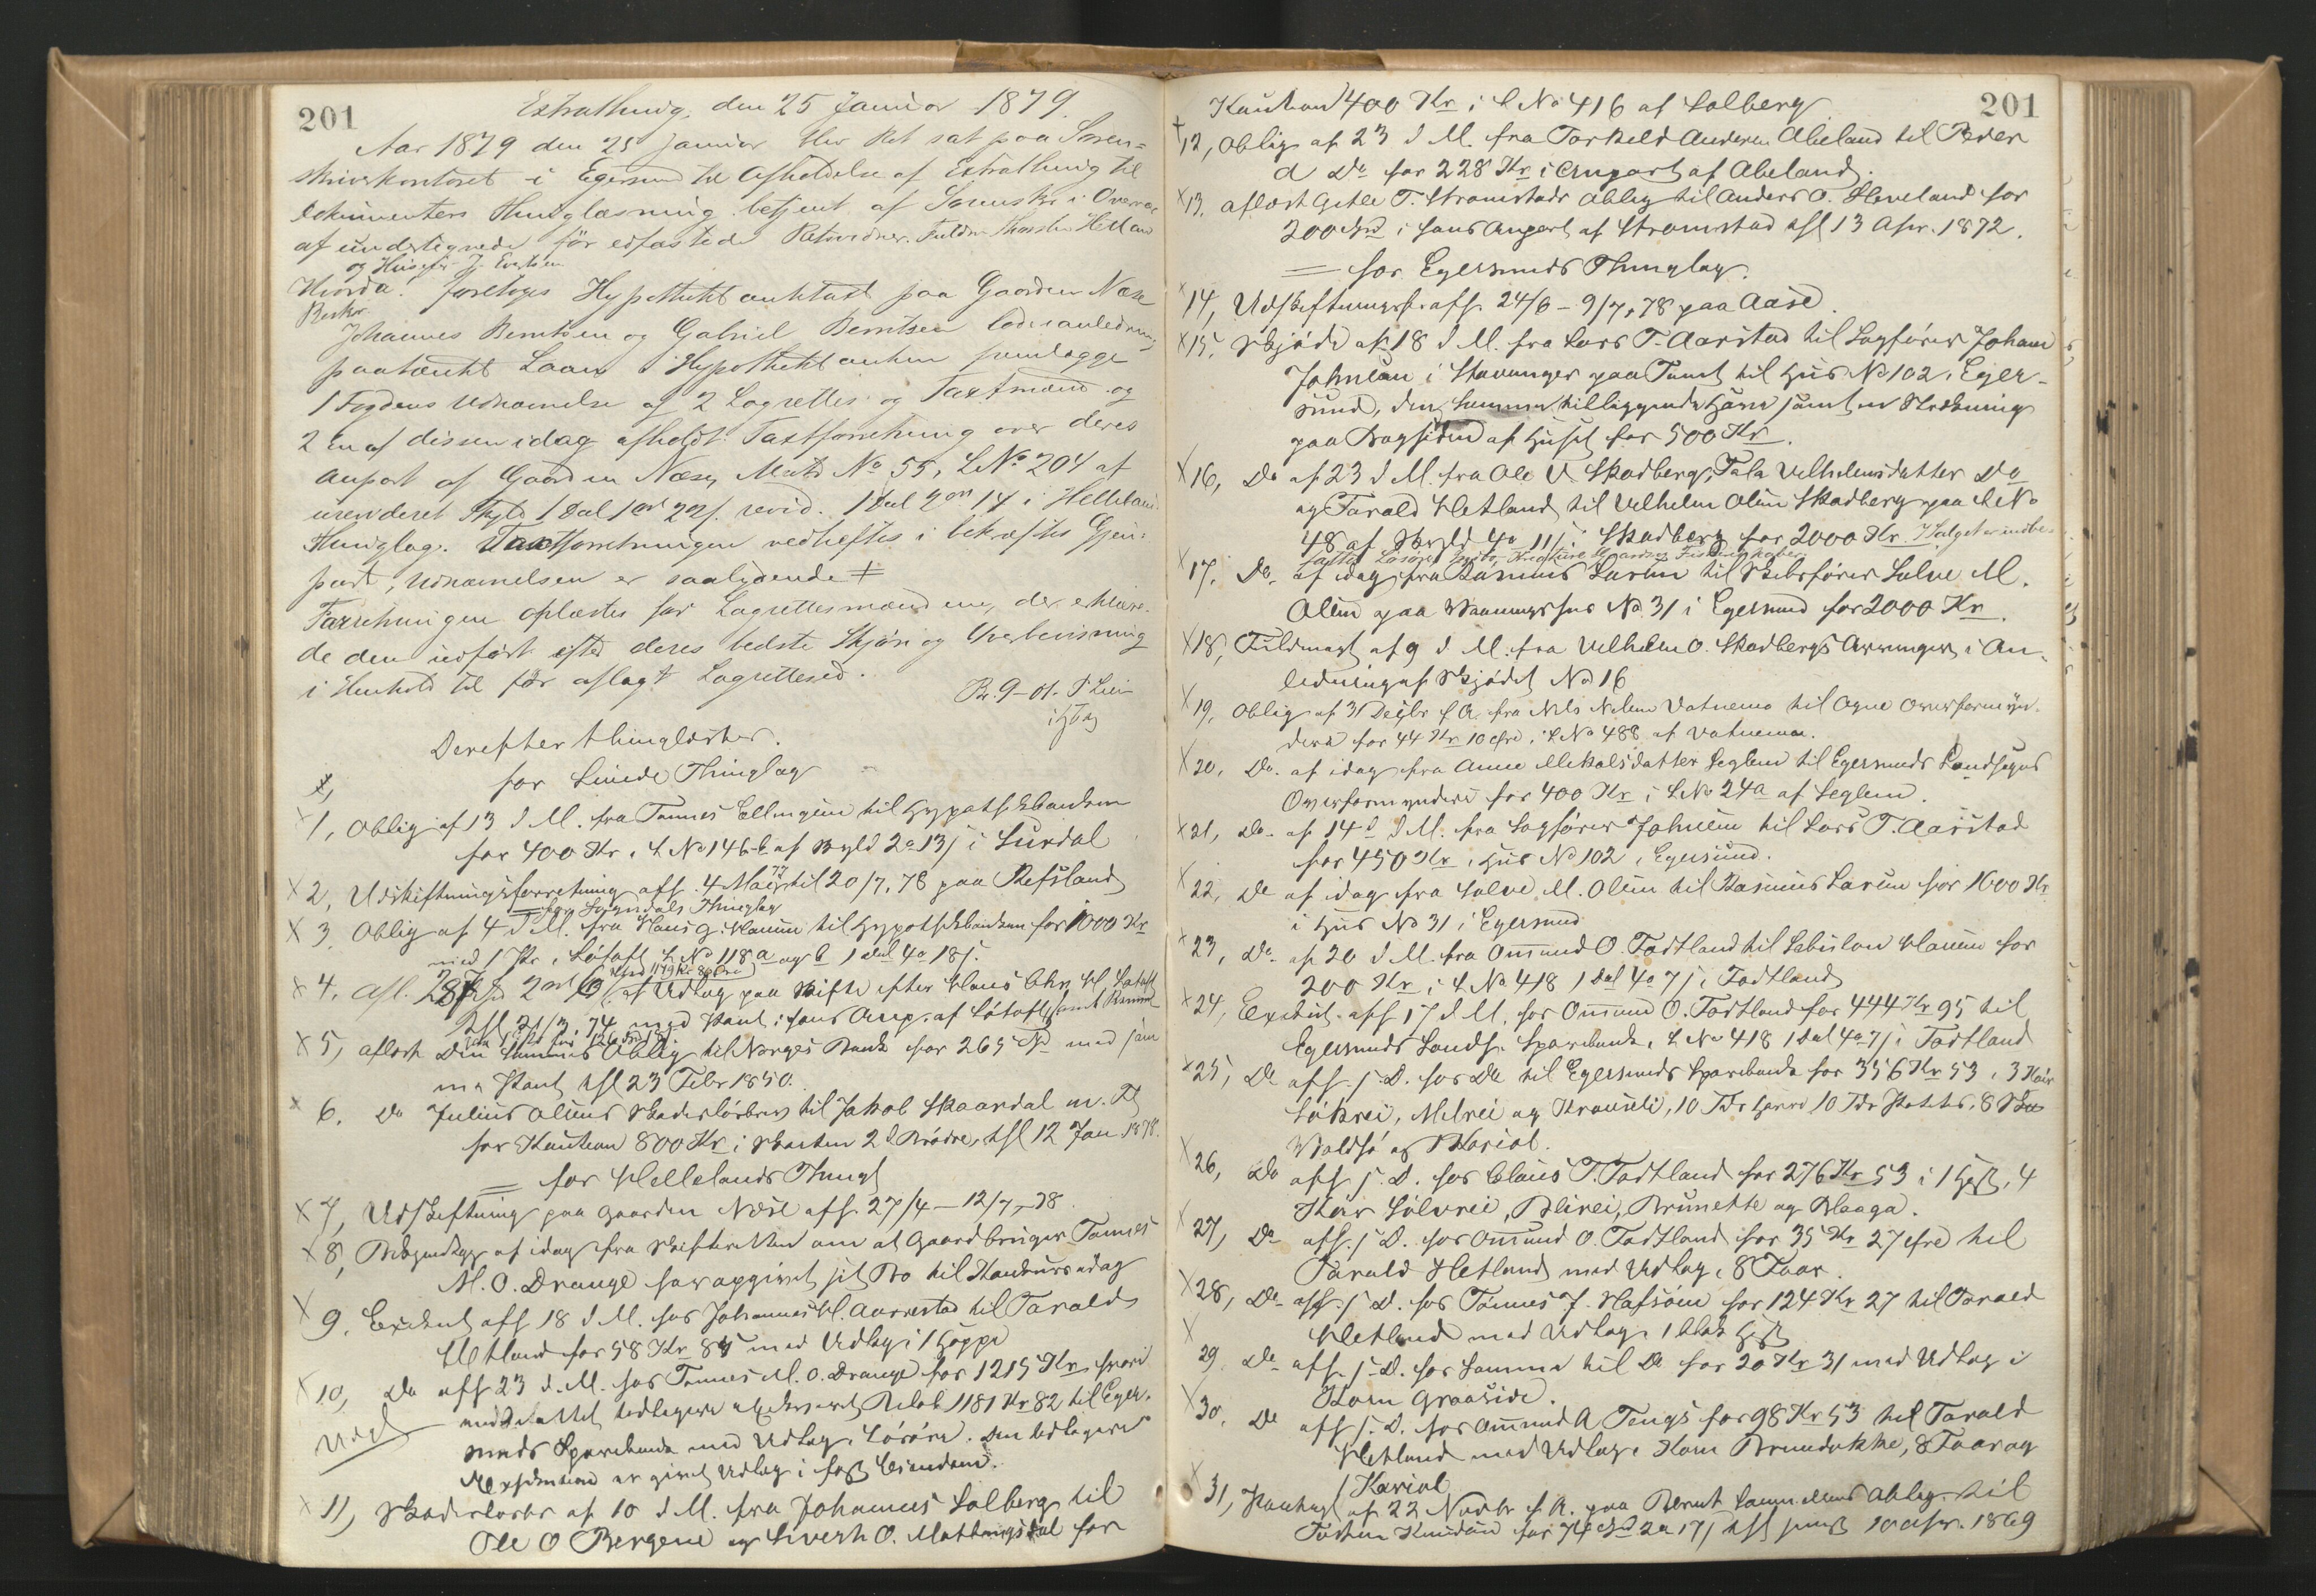 201
Extrathing, den 25 Januar 1879.
Aar 1879 den 25 Januar blev Ret sat paa Soren=
skriverkontoret i Egersund til Afholdelse af Extrathing til
Dokumenters Thinglæsning betjent af Sorenskr i Overvær
af undertegnede før edfæstede Retsvidner. Fuldm Thorsten Hetland
og Huusfr J. Evertsen
Hvorda: foretoges Hypothektaxt paa Gaarden Næse
Beskr
Johannes Berntsen og Gabriel Berntsen lod i anledning
paatænkt Laan i Hypothekbanken fremlægge
1 Fogdens Udnævnelse af 2 Lagrettes og Taxtmænd og
2 En af dissen idag afholdt Taxtforretning over deres
anpart af Gaarden Næse, Matr No 55, LNo 204 af
urevideret Skyld 1 Dal 1 ort 2 s. revid. 1 Dal 2 ort 14 i Hellelands
Thinglag. Taxtforretningen vedheftes i bekræftet Gjen=
part, Udnævnelsen er saalydende ≠
Forretningen oplæstes for Lagrettesmændene, der erklære-
de den udført efter deres bedste Skjøn og Overbeviisning
i Henhold til før aflagt Lagrettesed.
Derefter thinglæstes.
for Lunde Thinglag
1, Oblig af 13 d M. fra Tønnes Ellingsen til Hypothekbanken
for 400 Kr. i LNo 146 b af Skyld 2 o 13 s i Surdal
x 2, Udskiftningsforretning aff. 4 Mai 77 til 20/7. 78 paa Refsland
= for Sogndals Thinglag
x 3. Oblig af 4 d M. fra Hans G. Hansen til Hypothekbanken for 1000 Kr
med 1 Pr. i Løtoft LNo 118 a og b 1 Dal 4 o 18 s.
x 4. Afl. Udlæg paa Skifte efter Claus Chr. H. Løtoft
tgl. 21/3. 74 med Pant i hans Anp. af Løtoft
x 5, aflæst Den Sammes Oblig til Norges Bank for 265 Spd med sam
me Pant tgl 23 Febr 1850.
x 6. Do Julius Olsens Skadesløsbrev til Jakob Skaardal m. Fl
for Kaution 800 Kr i Skøiten 2 de Brødre, tgl 12 Jan 1878.
= for Hellelands Thingl
x 7, Udskiftning paa Gaarden Næse aff. 27/4 — 12/7, 78
x 8, Bekjendtgj af idag fra Skifteretten om at Gaardbruger Tønnes
M. O. Drange har opgivet sit Bo til Konkurs idag
x 9. Exekut aff 18 d M. hos Johannes H. Aarrestad til Tarald
Hetland for 58 Kr 85 med Udlæg i 1 Hoppe
x 10, Do aff 23 d. M. hos Tønnes M. O. Drange for 1215 Kr hvori
Beløb 1181 Kr 82 til Eger-
sunds Sparebank med Udlæg i Løsøre. Den tidligere
Exekution er givet Udlæg i fast Eiendom.
x 11, Skadesløsbr af 10 d M. fra Johannes Solberg til
Ole O Bergene og Sivert O. Mattingsdal for
201
Kaution 400 Kr i LNo 416 af Solberg
12, Oblig af 23 d M. fra Torkild Andersen Abeland til Peder
A Do for 228 Kr i Anpart af Abeland.
x 13. aflæst Gitle T. Stromstads Oblig til Anders O. Heveland for
200 Spd i hans Anpart af Stromstad tgl 13 Apr. 1872.
= for Egersunds Thinglag.
14, Udskiftningsf. aff. 24/6 – 9/7, 78 paa Aase
x 15, Skjøde af 18 d M. fra Lars T. Aarstad til Sagfører Johan
Johnsen i Stavanger paa Tomt til Huus No 102 i Eger-
sund, den Samme tilliggende Have samt en Strækning
paa Bagsiden af Huset for 500 Kr.
x 16, Do af 23 d M. fra Ole V. Skadberg, Tala Velhelmsdatter Do
og Tarald Hetland til Velhelm Olsen Skadberg paa LNo
48 af Skyld 4 o 11 s i Skadberg for 2000 Kr.
x 17. Do af idag fra Rasmus Larsen til Skibsfører Salve M.
Olsen paa Vaaningshus No 31 i Egersund for 2000 Kr.
x 18, Fuldmagt af 9 d M. fra Velhelm O. Skadbergs Arvinger i An-
ledning af Skjødet No 16
x 19, Oblig af 31 Decbr f A. fra Nils Nilsen Vatnemo til Ogne Overformyn-
deri for 44 Kr 10 Øre i LNo 488 af Vatnemo.
x 20, Do. af idag fra Anne Mikalsdatter Seglem til Egersunds Landsogns
Overformynderi for 400 Kr i LNo 24 a af Seglem.
x 21, Do. af 14 d d M. fra Sagfører Johnsen til Lars T. Aarstad
for 450 Kr i Hus No 102 i Egersund.
x 22, Do af idag fra Salve M. Olsen til Rasmus Larsen for 1600 Kr
i Hus No 31 i Egersund
x 23, Do. af 20 d M. fra Ommund O. Fodtland til Sebulon Hansen for
200 Kr i LNo 418 1 Dal 4 o 7 s i Fodtland
x 24, Exekut. aff 17 d M. hos Ommund O. Fodtland for 444 Kr 95 til
Egersunds Lands. Sparebank, i LNo 418 1 Dal 4 o 7 s i Fodtland
x 25, Do aff. s. D. hos Do til Egersunds Sparebank for 356 Kr 53 i 3 Kør
10 Tdr Havre 10 Tdr Poteter, 8 Faar
og Kariol.
x 26, Do aff s. D. hos Claus T. Fodtland for 276 Kr 53 i 1 Hest, 4
Kør Sølvrei, Blirei, Brunette og Blaaga.
x 27, Do aff. s. D. hos Ommund O. Fodtland for 35 Kr 27 Øre til
Tarald Hetland med Udlæg i 8 Faar.
x 28, Do aff. s. D. hos Tønnes J. Hafsøen for 124 Kr 27 til Tarald
Hetland med Udlæg i 1 blak Hest
x 29. Do aff. s. D. hos Samme til Do for 20 Kr 31 med Udlæg i
Koen Graaside.
x 30. Do aff s. D. hos Ommund A Tengs for 98 Kr 53 til Tarald
Hetland med Udlæg i Koen Brundokke, 8 Faar og
1 Kariol
x 31, af 22 Novbr f A. paa Bernt Samuelsens Oblig til
Tosten Knudsen for tgl 10 Apr. 1869